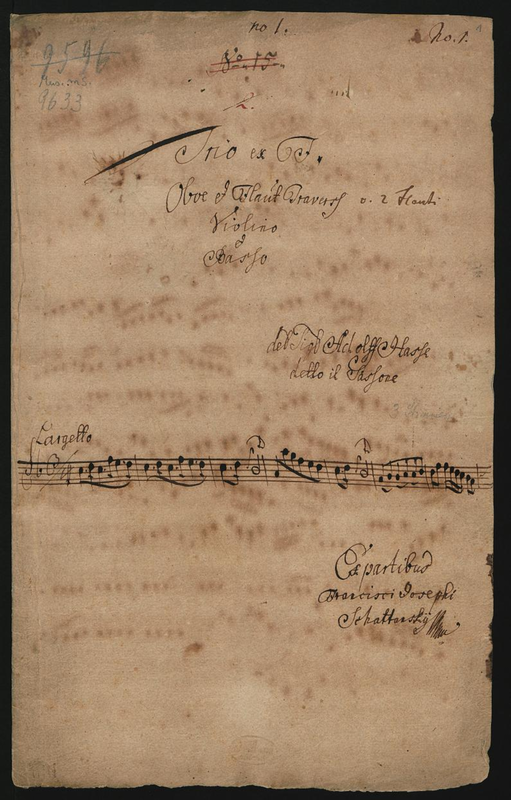 no 1.
No. 1.
9596
No 15
Mus. ms.
9633
2.
Trio ex F.
Oboe è Flaut Travers o. 2 Flauti
Violino
è
Basso
del Sigl Adolff Hasse
detto il Sassone
Largetto
Ex partibus
Francisci Josephi
Schattansky